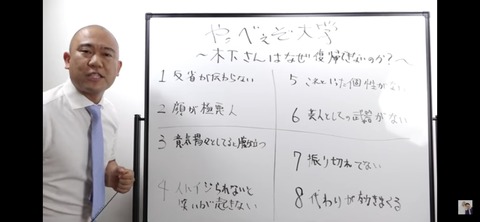 やべぇぞ大学
〜木下さんはなぜ復帰できないのか?〜
1 反省が伝わらない
2 顔が極悪人
3 貴金属をしてると腹立つ
4 人にイジられないと
笑いが起きない
5 これといった個性がない
6 芸人としての話がない
7 振り切れてない
8 代わりが効きまくる